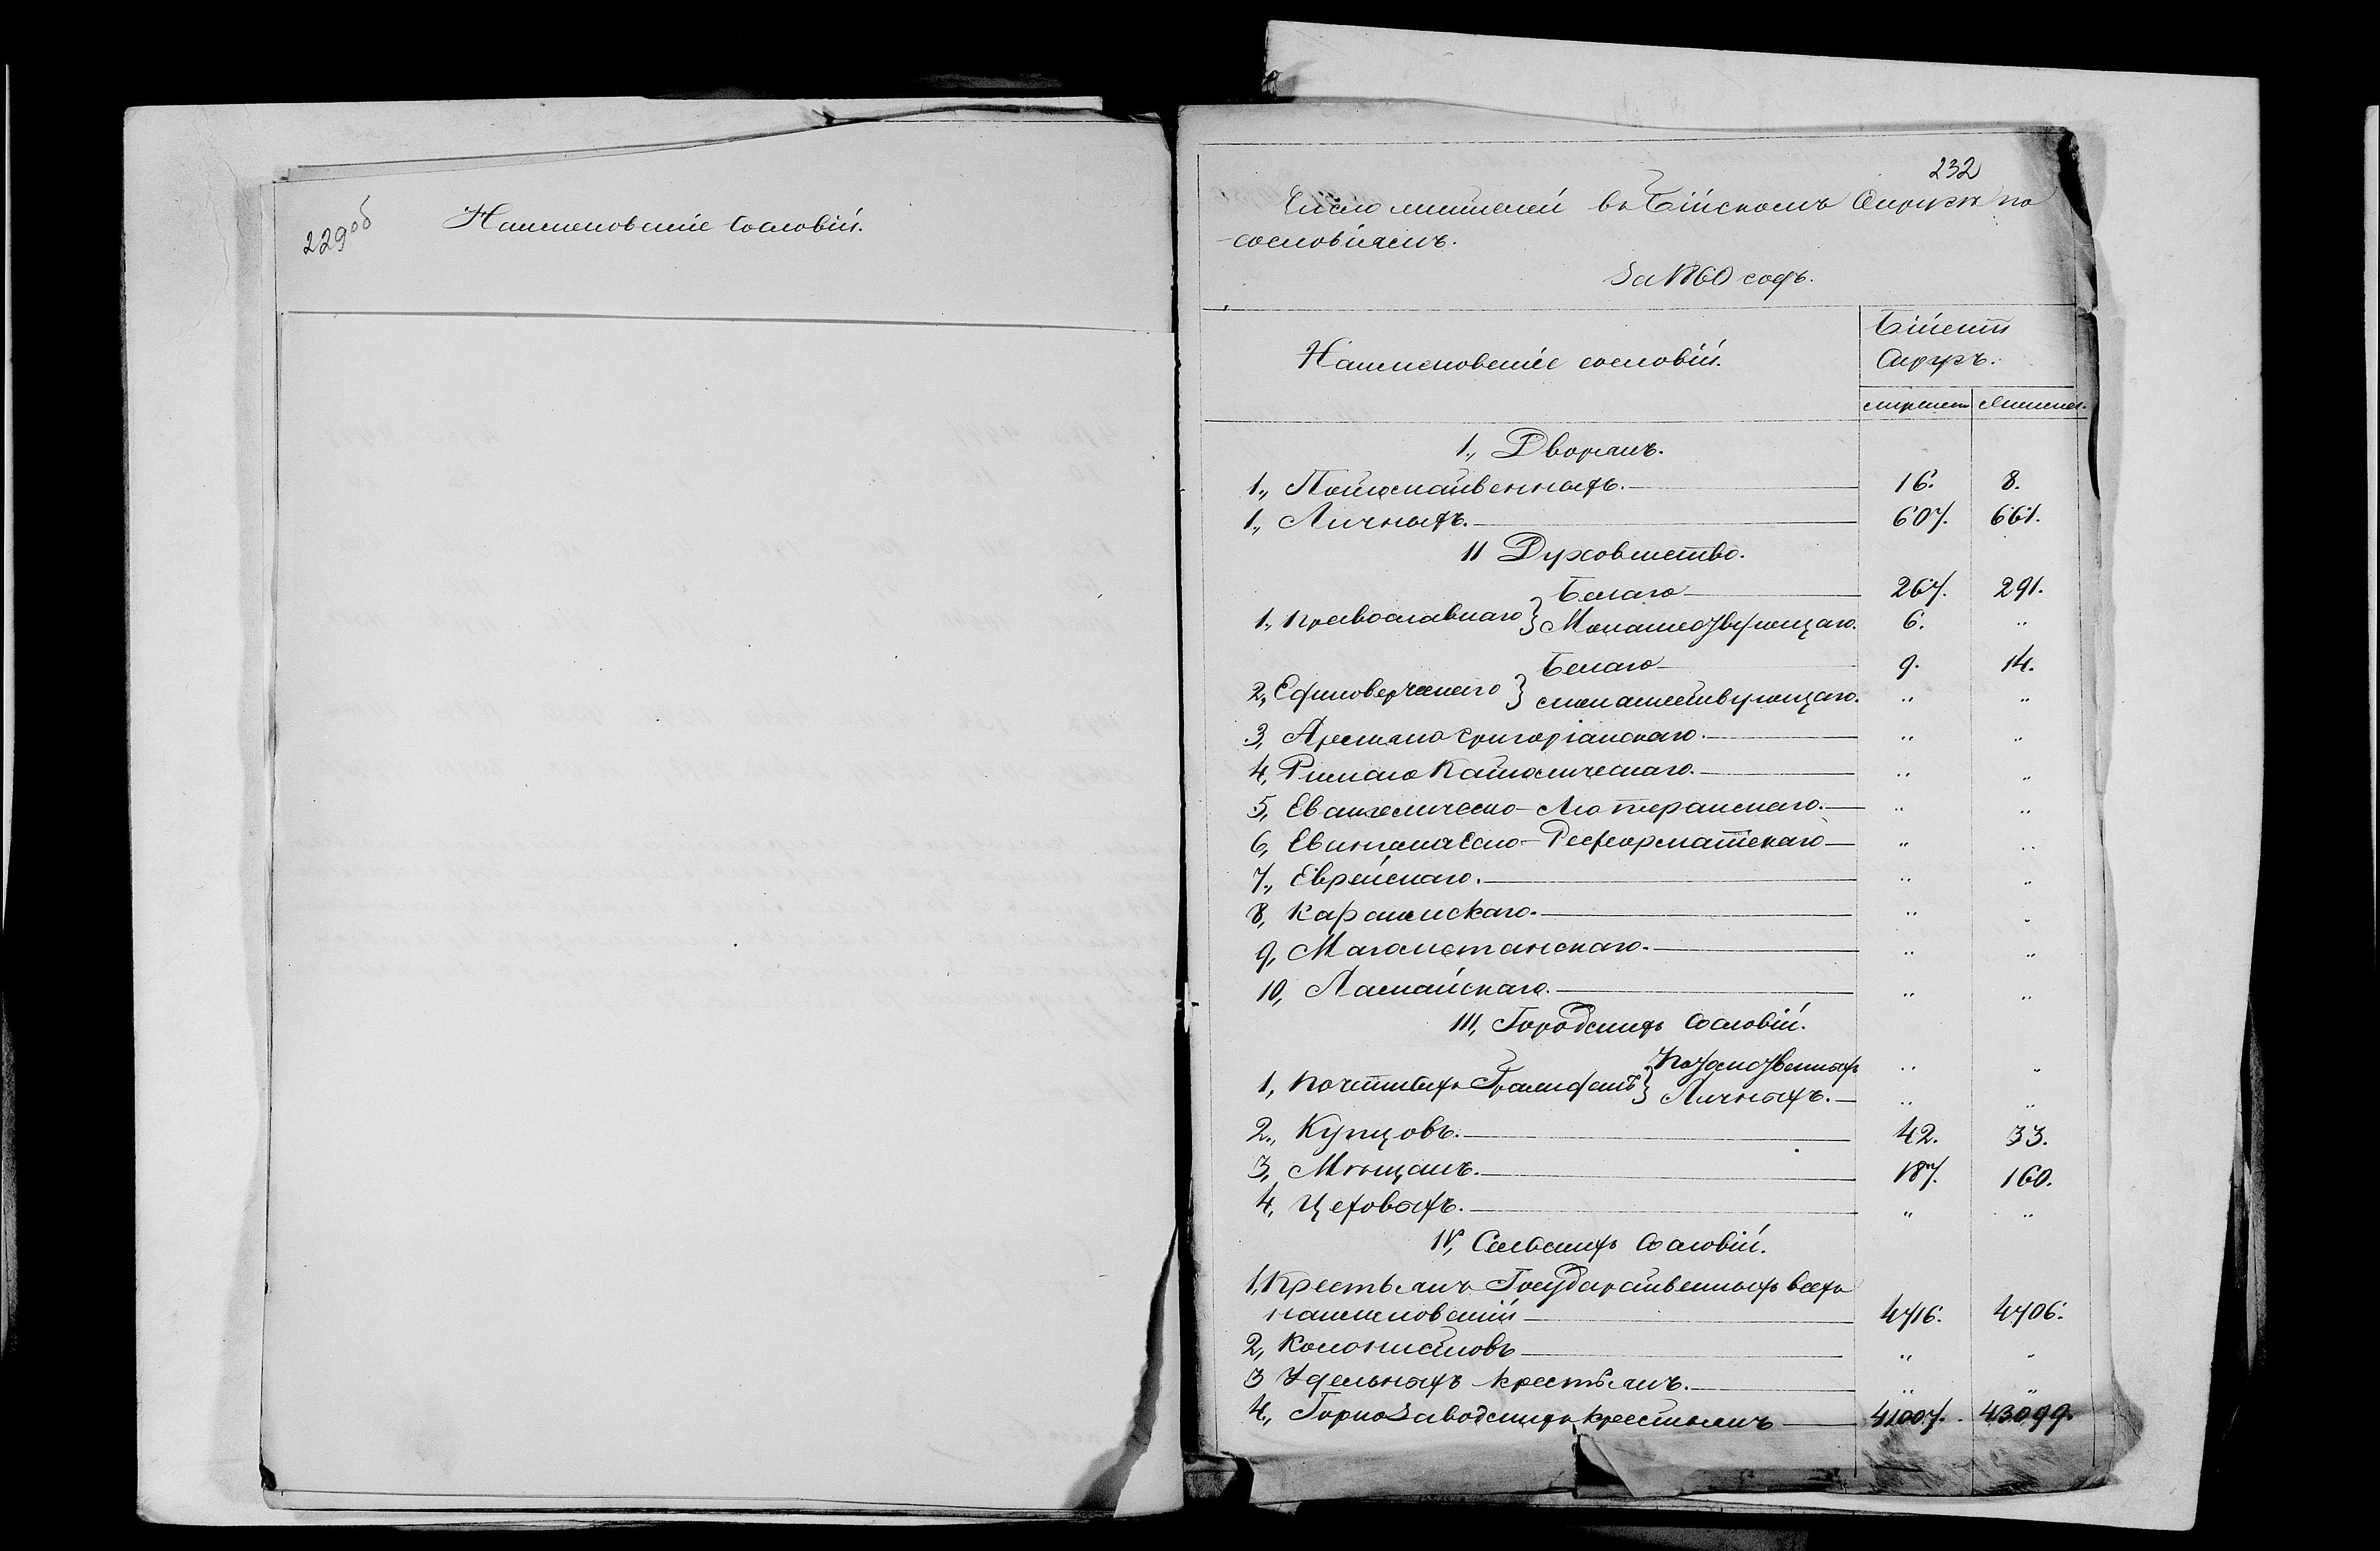 229об
Наименованіе сословій.
232
Число жителей въ Бійскомъ Округѣ по
сословіямъ.
За 1860 годъ.
Наименованіе сословій.
Бійскій
Округъ.
мужчин Женщин.
1., Дворянъ.
1., Потомственныхъ. 16. 8.
1., Личныхъ. 607. 661.
II Духовенство.
Белаго 267. 291.
1., Православнаго } Монашествующаго. 6. "
Белаго 9. 14.
2., Единоверческаго } монашествующаго. " "
3, Армяно григоріанскаго. " "
4, Римско Католическаго. " "
5, Евангелическо-Лютеранскаго. " "
6, Евангелическо-Реформатскаго " "
7., Еврейскаго. " "
8, Караимскаго. " "
9, Магометанскаго. " "
10, Ламайскаго. " "
III, Городскихъ Сословій.
Потомственныхъ " "
1, Почетныхъ Гражданъ } Личныхъ. " "
2., Купцовъ. 42. 33.
3, Мѣщанъ. 187. 160.
4, Цеховыхъ. " "
IV, Сельскихъ Сословій.
1, Крестьянъ Государственныхъ всехъ
наименованій 4716. 4706.
2, Колонистовъ " "
3 Удельныхъ крестьянъ. " "
4., Горнозаводскихъ крестьянъ 41007. 43099.